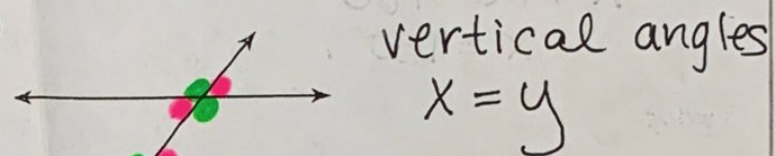 vertical angles
x = y